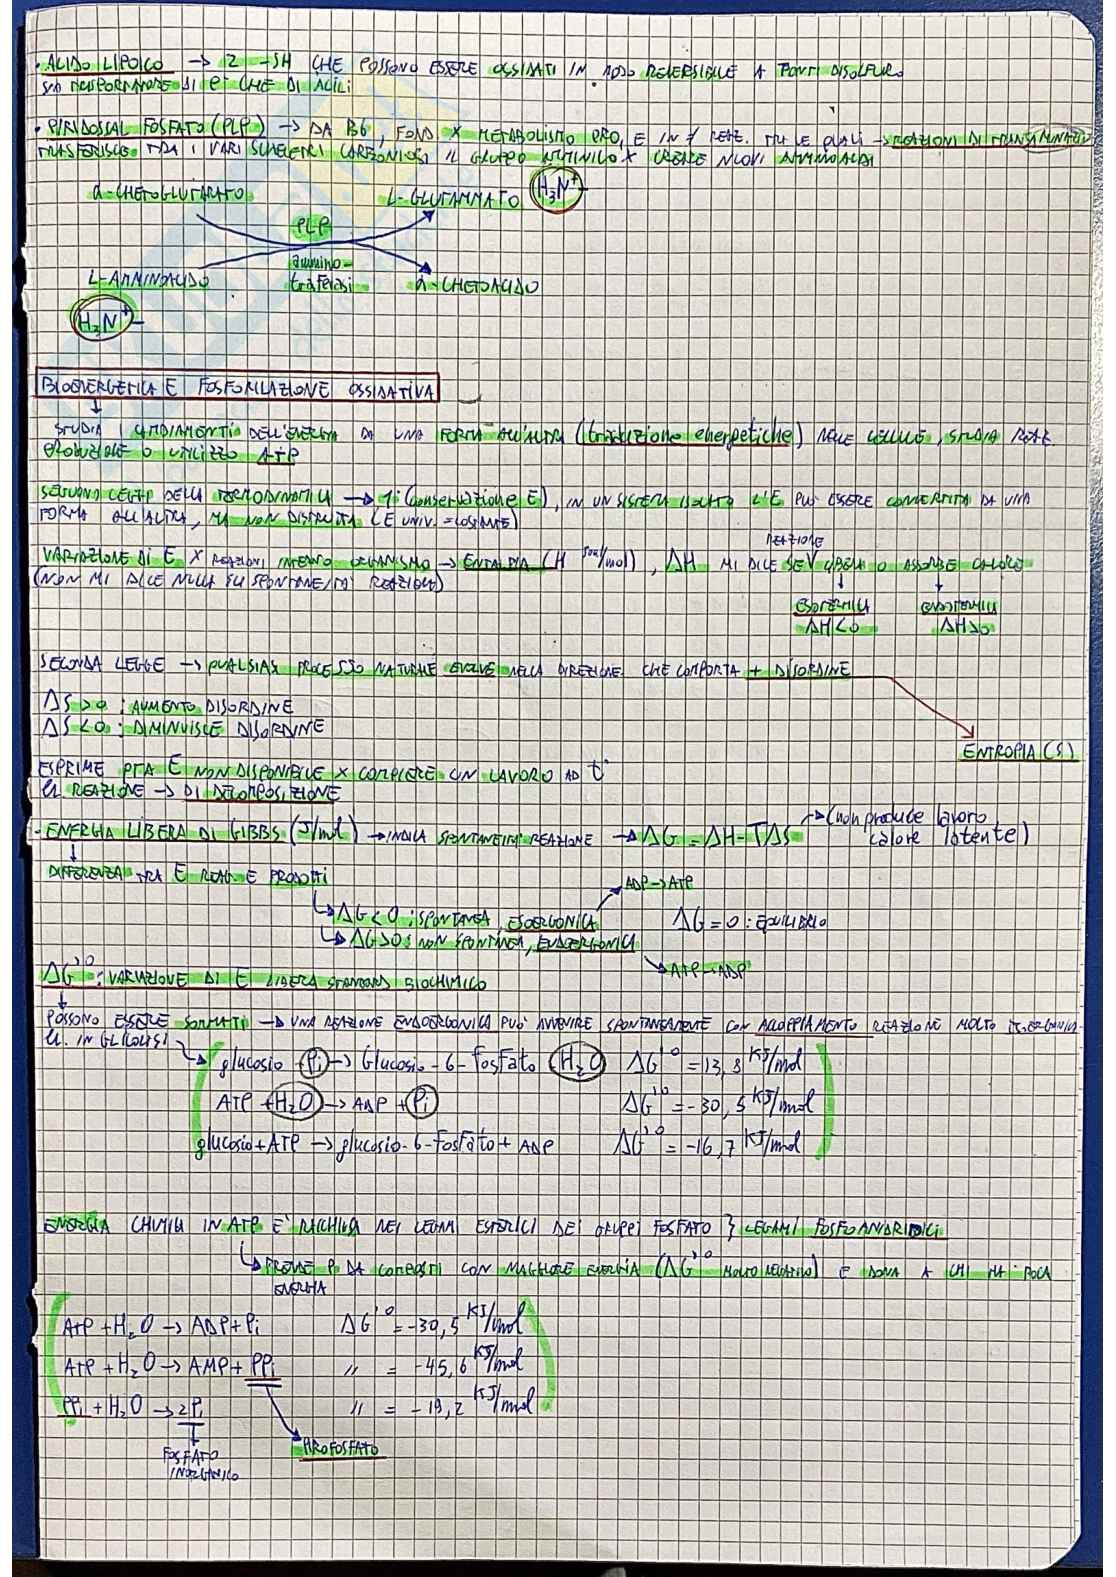 • ACIDO LIPOICO → 2 -SH CHE POSSONO ESSERE OSSIDATI IN MODO REVERSIBILE A PONTI DISOLFURO
SIA TRASPORTATORE DI e⁻ CHE DI ACILI
• PIRIDOSSAL FOSFATO (PLP) → DA B6, FOND X METABOLISMO PRO, E IN ≠ REAZ. TRA LE QUALI → REAZIONI DI TRANSAMINAZIO
TRASFERISCE TRA I VARI SCHELETRI CARBONIOSI IL GRUPPO AMMINICO X CREARE NUOVI AMMINOACIDI
α-CHETOGLUTARATO L-GLUTAMMATO H₃N⁺-
PLP
ammino-
traferasi
L-AMMINOACIDO α-CHETOACIDO
H₃N⁺-
BIOENERGETICA E FOSFORILAZIONE OSSIDATIVA
STUDIA I CAMBIAMENTI DELL'ENERGIA DA UNA FORMA ALL'ALTRA (traduzione energetiche) NELLE CELLULE, STUDIA REAZ.
PRODUZIONE O UTILIZZO ATP
SEGUONO LEGGI DELLA TERMODINAMICA → 1ª (conservazione E), IN UN SISTEMA ISOLATO L'E PUÒ ESSERE CONVERTITA DA UNA
FORMA ALL'ALTRA, MA NON DISTRUTTA (E UNIV. = COSTANTE)
REAZIONE
VARIAZIONE DI E X REAZIONI INTERNO ORGANISMO → ENTALPIA (H Joul/mol), ΔH MI DICE SE V LIBERA O ASSORBE CALORE
(NON MI DICE NULLA SU SPONTANEITÀ REAZIONE)
ESOTERMICA ENDOTERMICA
ΔH<0 ΔH>0
SECONDA LEGGE → QUALSIASI PROCESSO NATURALE EVOLVE NELLA DIREZIONE CHE COMPORTA + DISORDINE
ΔS>0 : AUMENTO DISORDINE
ΔS<0 : DIMINUISCE DISORDINE
ENTROPIA (S)
ESPRIME QTÀ E NON DISPONIBILE X COMPIERE UN LAVORO AD t°
Es. REAZIONE → DI DECOMPOSIZIONE
- ENERGIA LIBERA DI GIBBS (J/mol) → INDICA SPONTANEITÀ REAZIONE → ΔG = ΔH-TΔS → (non produce lavoro
calore latente)
DIFFERENZA TRA E REAG. E PRODOTTI
ADP→ATP
ΔG<0 : SPONTANEA, ESOERGONICA ΔG=0 : EQUILIBRIO
ΔG>0 : NON SPONTANEA, ENDOERGONICA
ATP→ADP
ΔG'° : VARIAZIONE DI E LIBERA STANDARD BIOCHIMICO
POSSONO ESSERE SOMMATI → UNA REAZIONE ENDOERGONICA PUÒ AVVENIRE SPONTANEAMENTE CON ACCOPPIAMENTO REAZIONE MOLTO ESOERGONICA
Es. IN GLICOLISI
glucosio + Pi → Glucosio-6-fosfato H₂O ΔG'° = 13,8 KJ/mol
ATP + H₂O → ADP + Pi ΔG'° = -30,5 KJ/mol
glucosio + ATP → glucosio-6-fosfato + ADP ΔG'° = -16,7 KJ/mol
ENERGIA CHIMICA IN ATP È RACCHIUSA NEI LEGAMI ESTERICI DEI GRUPPI FOSFATO } LEGAMI FOSFOANIDRIDICI
PRENDE P DA COMPOSTI CON MAGGIORE ENERGIA (ΔG'° MOLTO NEGATIVO) E DONA A CHI HA POCA
ENERGIA
ATP + H₂O → ADP + Pi ΔG'° = -30,5 KJ/mol
ATP + H₂O → AMP + PPi " = -45,6 KJ/mol
PPi + H₂O → 2Pi " = -19,2 KJ/mol
FOSFATO
INORGANICO
PIROFOSFATO